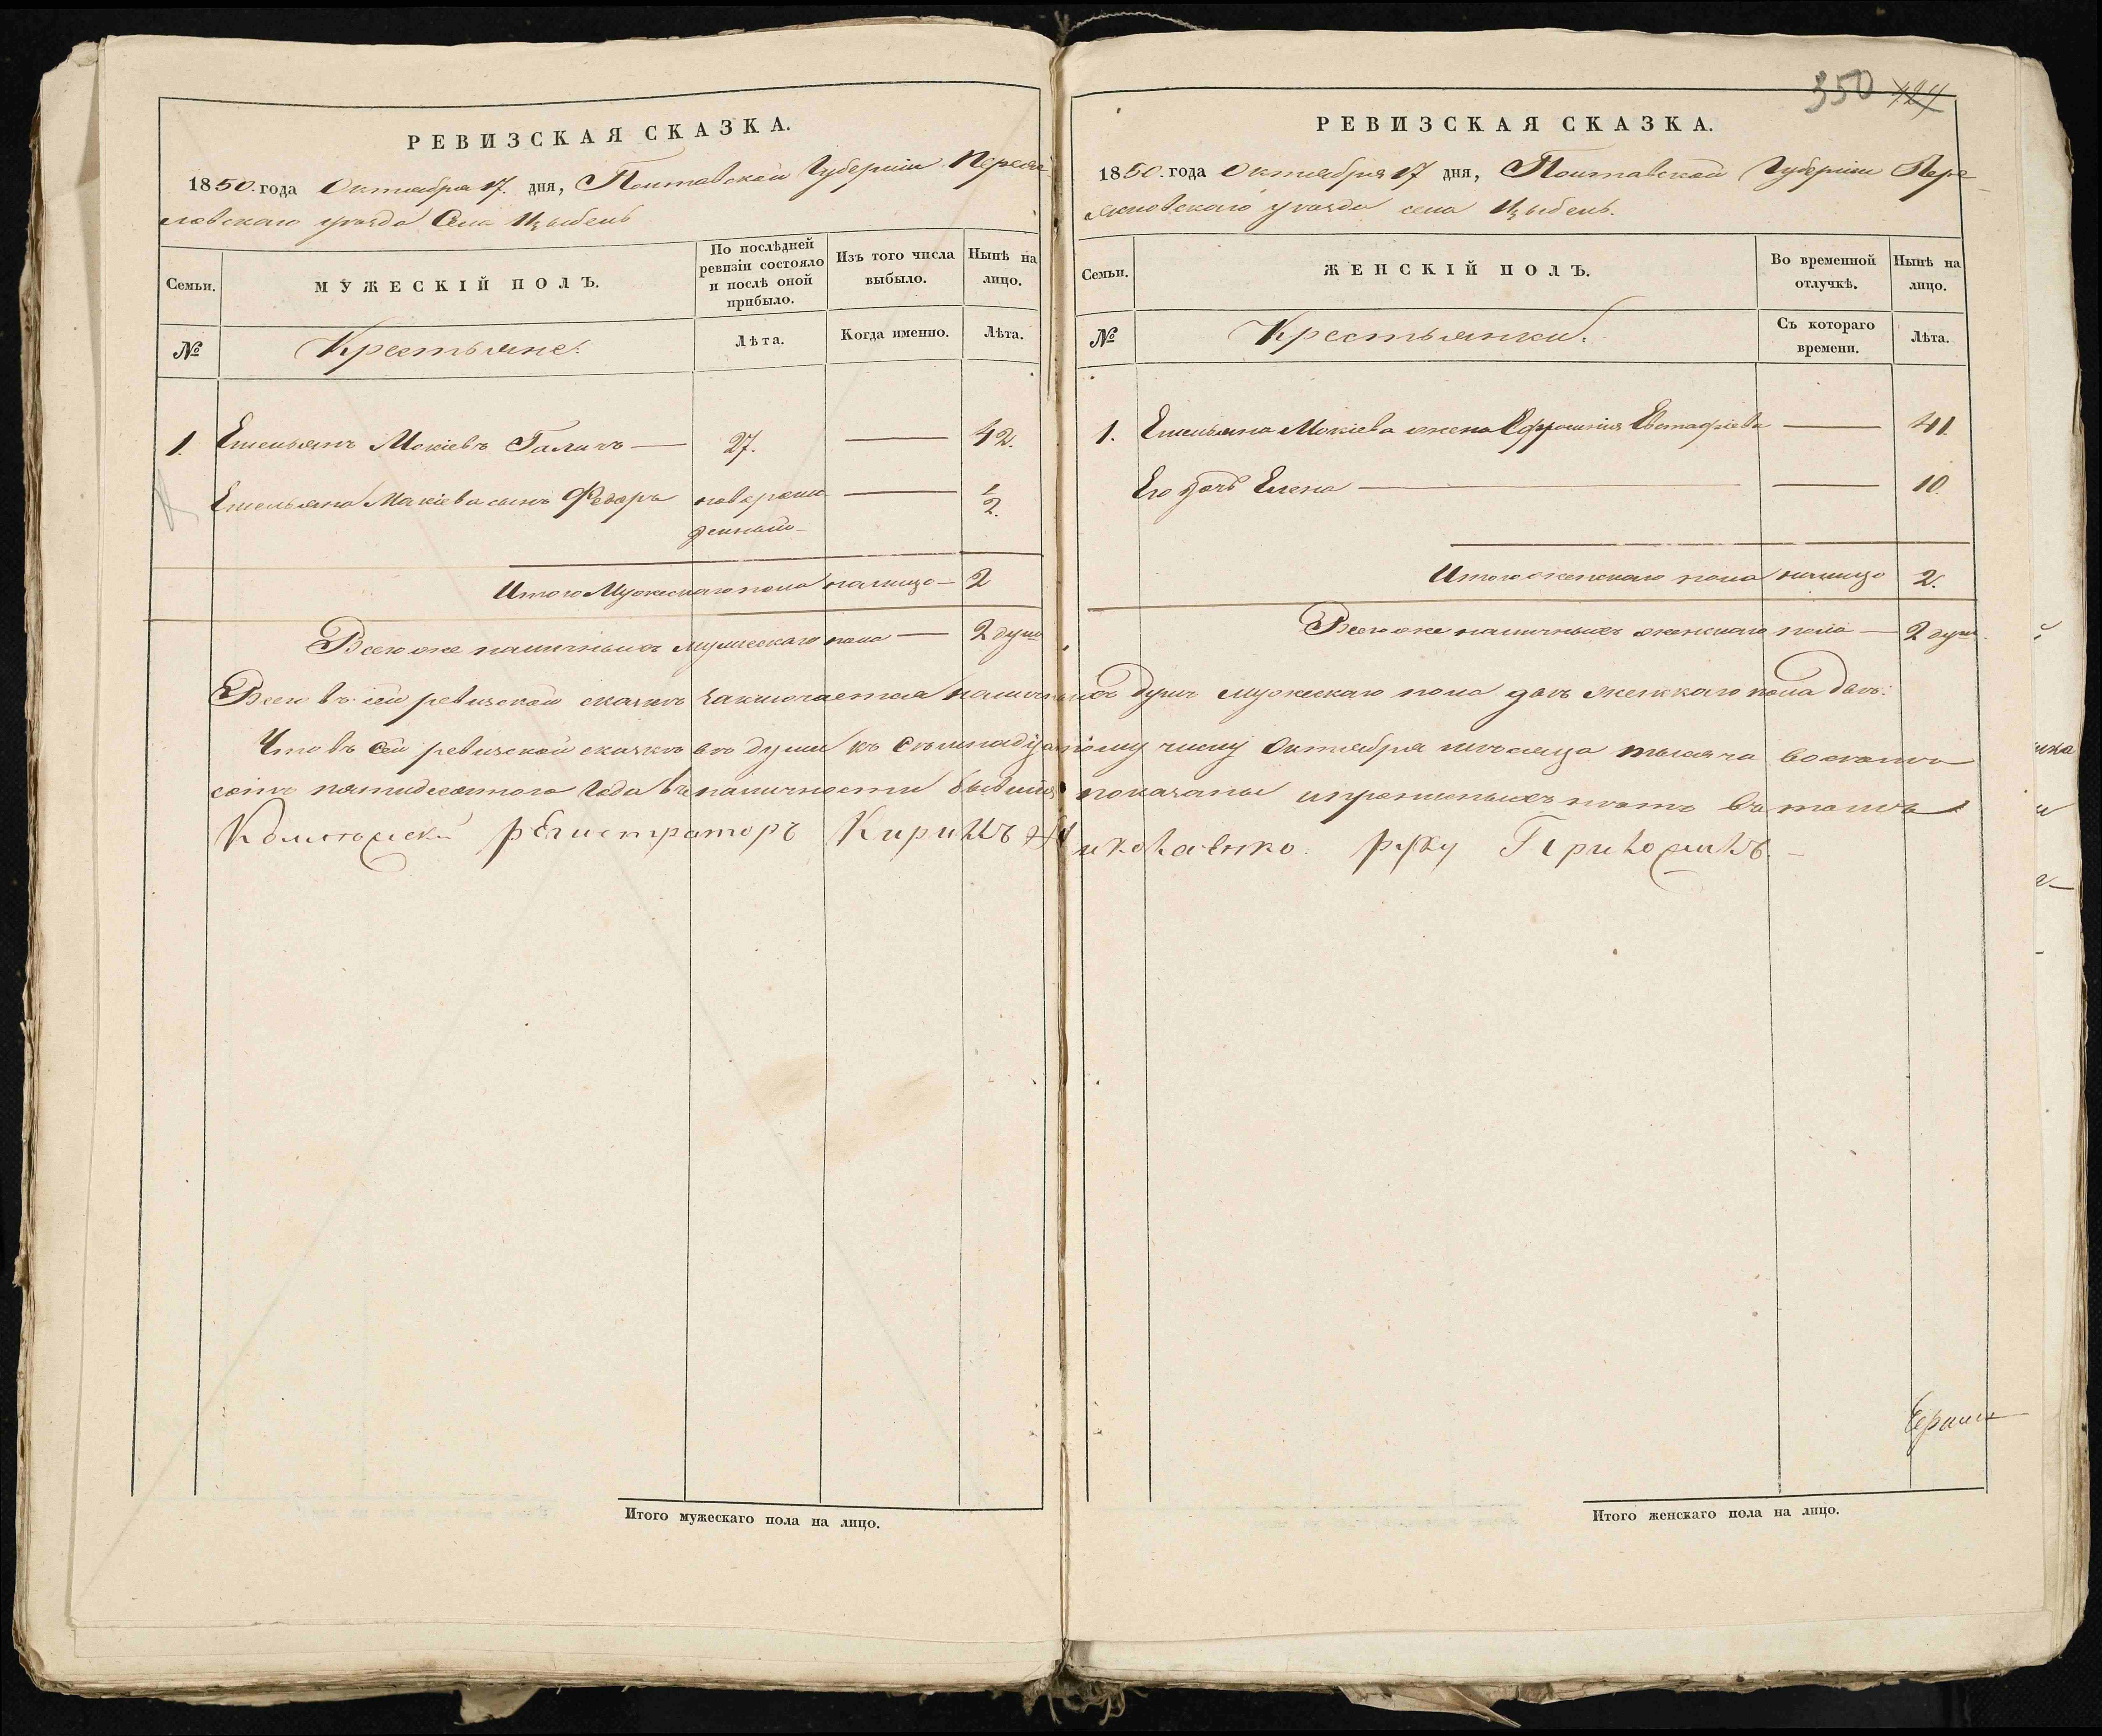 РЕВИЗСКАЯ СКАЗКА.
1850. года Октября 17. дня, Полтавской Губернии Переяс-
ловскаго уезда Села Цыбель
Семьи.
МУЖЕСКІЙ ПОЛЪ.
По послѣдней ревизіи состояло и послѣ оной прибыло.
Изъ того числа выбыло.
Нынѣ на лицо.
№
Крестьяне.
Лѣта.
Когда именно.
Лѣта.
1. Емельянъ Мокіевъ Галичъ — 27. — 42.
Емельяна Мокіева сынъ Федоръ новорож- — 1/2.
денный
Итого Мужескаго пола налицо — 2
Всего же наличныхъ мужескаго пола — 2 душ
350 424
РЕВИЗСКАЯ СКАЗКА.
1850. года Октября 17 дня, Полтавской Губерніи Пере-
ясловскаго уезда села Цыбель.
Семьи.
ЖЕНСКІЙ ПОЛЪ.
Во временной отлучкѣ.
Нынѣ на лицо.
№
Крестьянки.
Съ котораго времени.
Лѣта.
1. Емельяна Мокіева жена Ефросинія Евстафіева — 41
Его дочь Елена — — 10.
Итого женскаго пола налицо 2.
Всего же наличныхъ женскаго пола — 2 душ.
Всего въ сей ревизской сказкѣ заключается наличныхъ душъ мужескаго пола двѣ женскаго пола двѣ.
Что въ сей ревизской сказкѣ все души къ семнадцатому числу Октября мѣсяца тысяча восемь
сотъ пятидесятого года въ наличности бывшія показаны и прописныхъ нѣтъ въ томъ
Колежскій регистраторъ Кирилъ руку Приложилъ. —
Итого мужескаго пола на лицо.
Итого женскаго пола на лицо.